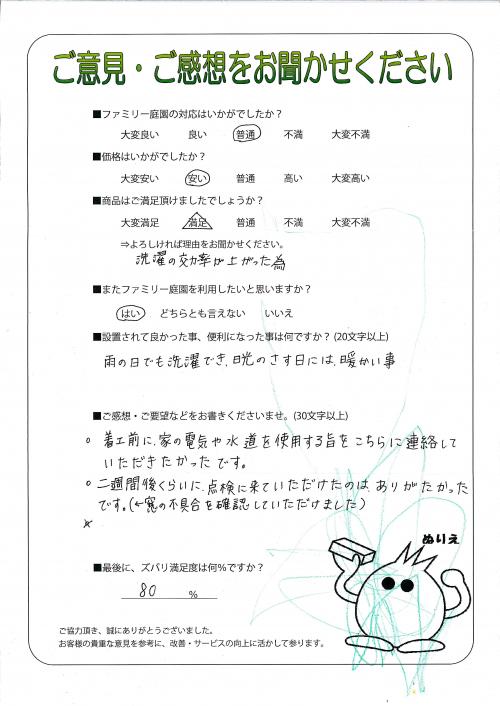 ご意見・ご感想をお聞かせください
■ファミリー庭園の対応はいかがでしたか？
大変良い 良い 普通 不満 大変不満
■価格はいかがでしたか？
大変安い 安い 普通 高い 大変高い
■商品はご満足頂けましたでしょうか？
大変満足 満足 普通 不満 大変不満
⇒よろしければ理由をお聞かせください。
洗濯の効率が上がった為
■またファミリー庭園を利用したいと思いますか？
はい どちらとも言えない いいえ
■設置されて良かった事、便利になった事は何ですか？(20文字以上)
雨の日でも洗濯でき、日光のさす日には、暖かい事
■ご感想・ご要望などをお書きくださいませ。(30文字以上)
○ 着工前に、家の電気や水道を使用する旨をこちらに連絡して
いただきたかったです。
○ 二週間後くらいに、点検に来ていただけたのは、ありがたかった
です。(←窓の不具合を確認していただけました)
ぬりえ
■最後に、ズバリ満足度は何％ですか？
80 ％
ご協力頂き、誠にありがとうございました。
お客様の貴重な意見を参考に、改善・サービスの向上に活かして参ります。